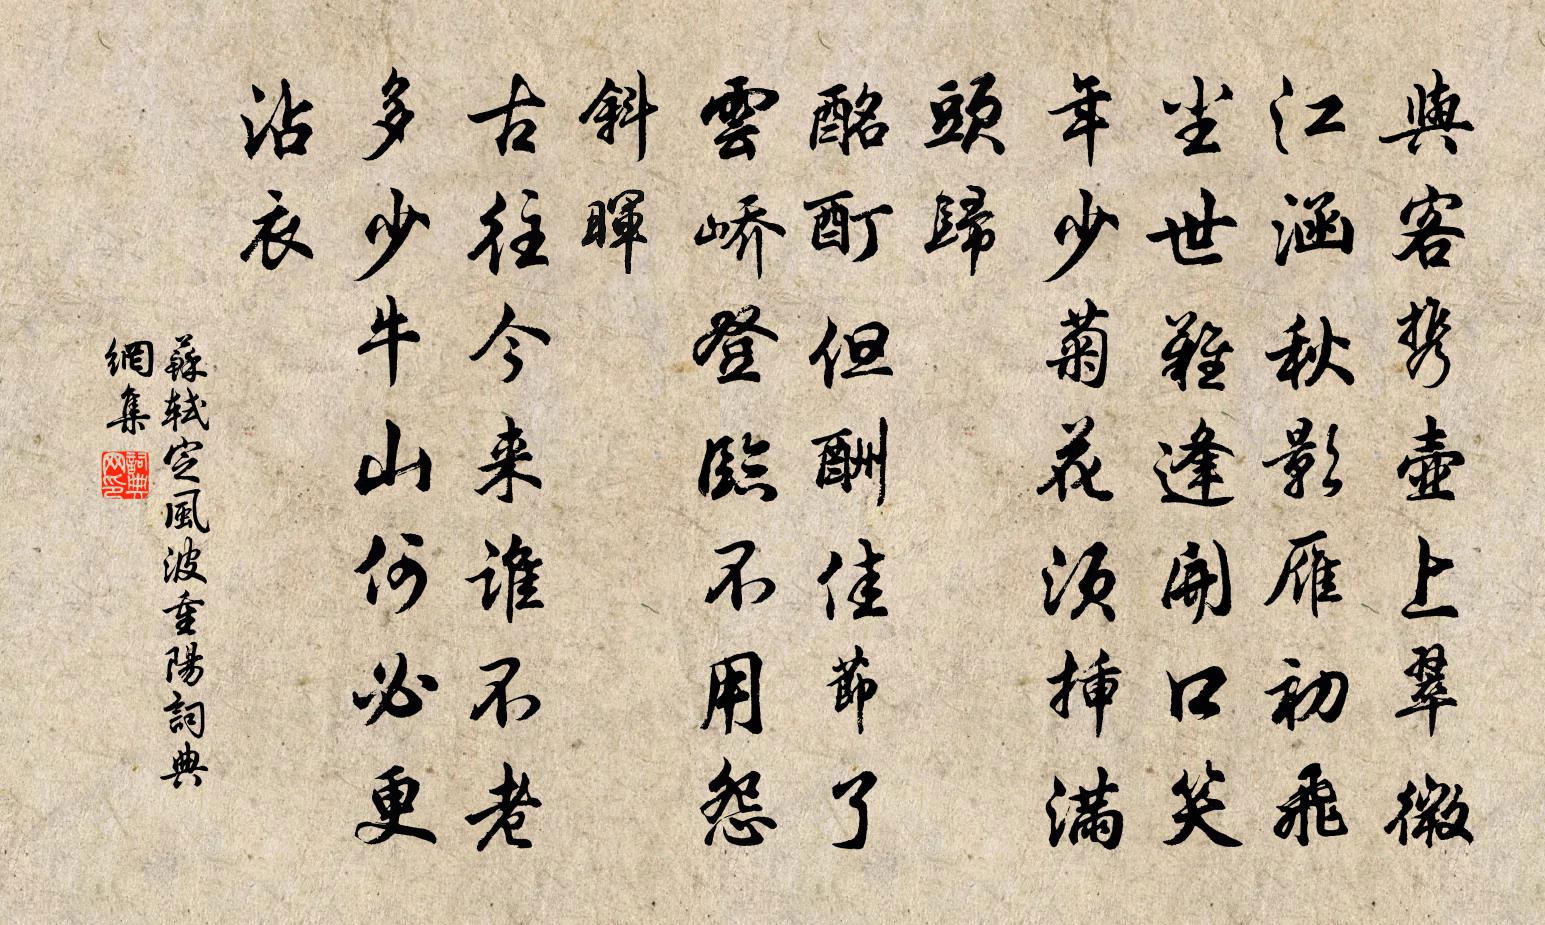 與客携壺上翠微
江涵秋影雁初飛
尘世難逢開口笑
年少菊花須插滿
頭歸
酩酊但酬佳節了
雲嶠登臨不用怨
斜暉
古往今来誰不老
多少牛山何必更
沾衣
蘇軾定風波重陽詞典
網集
詞典網印